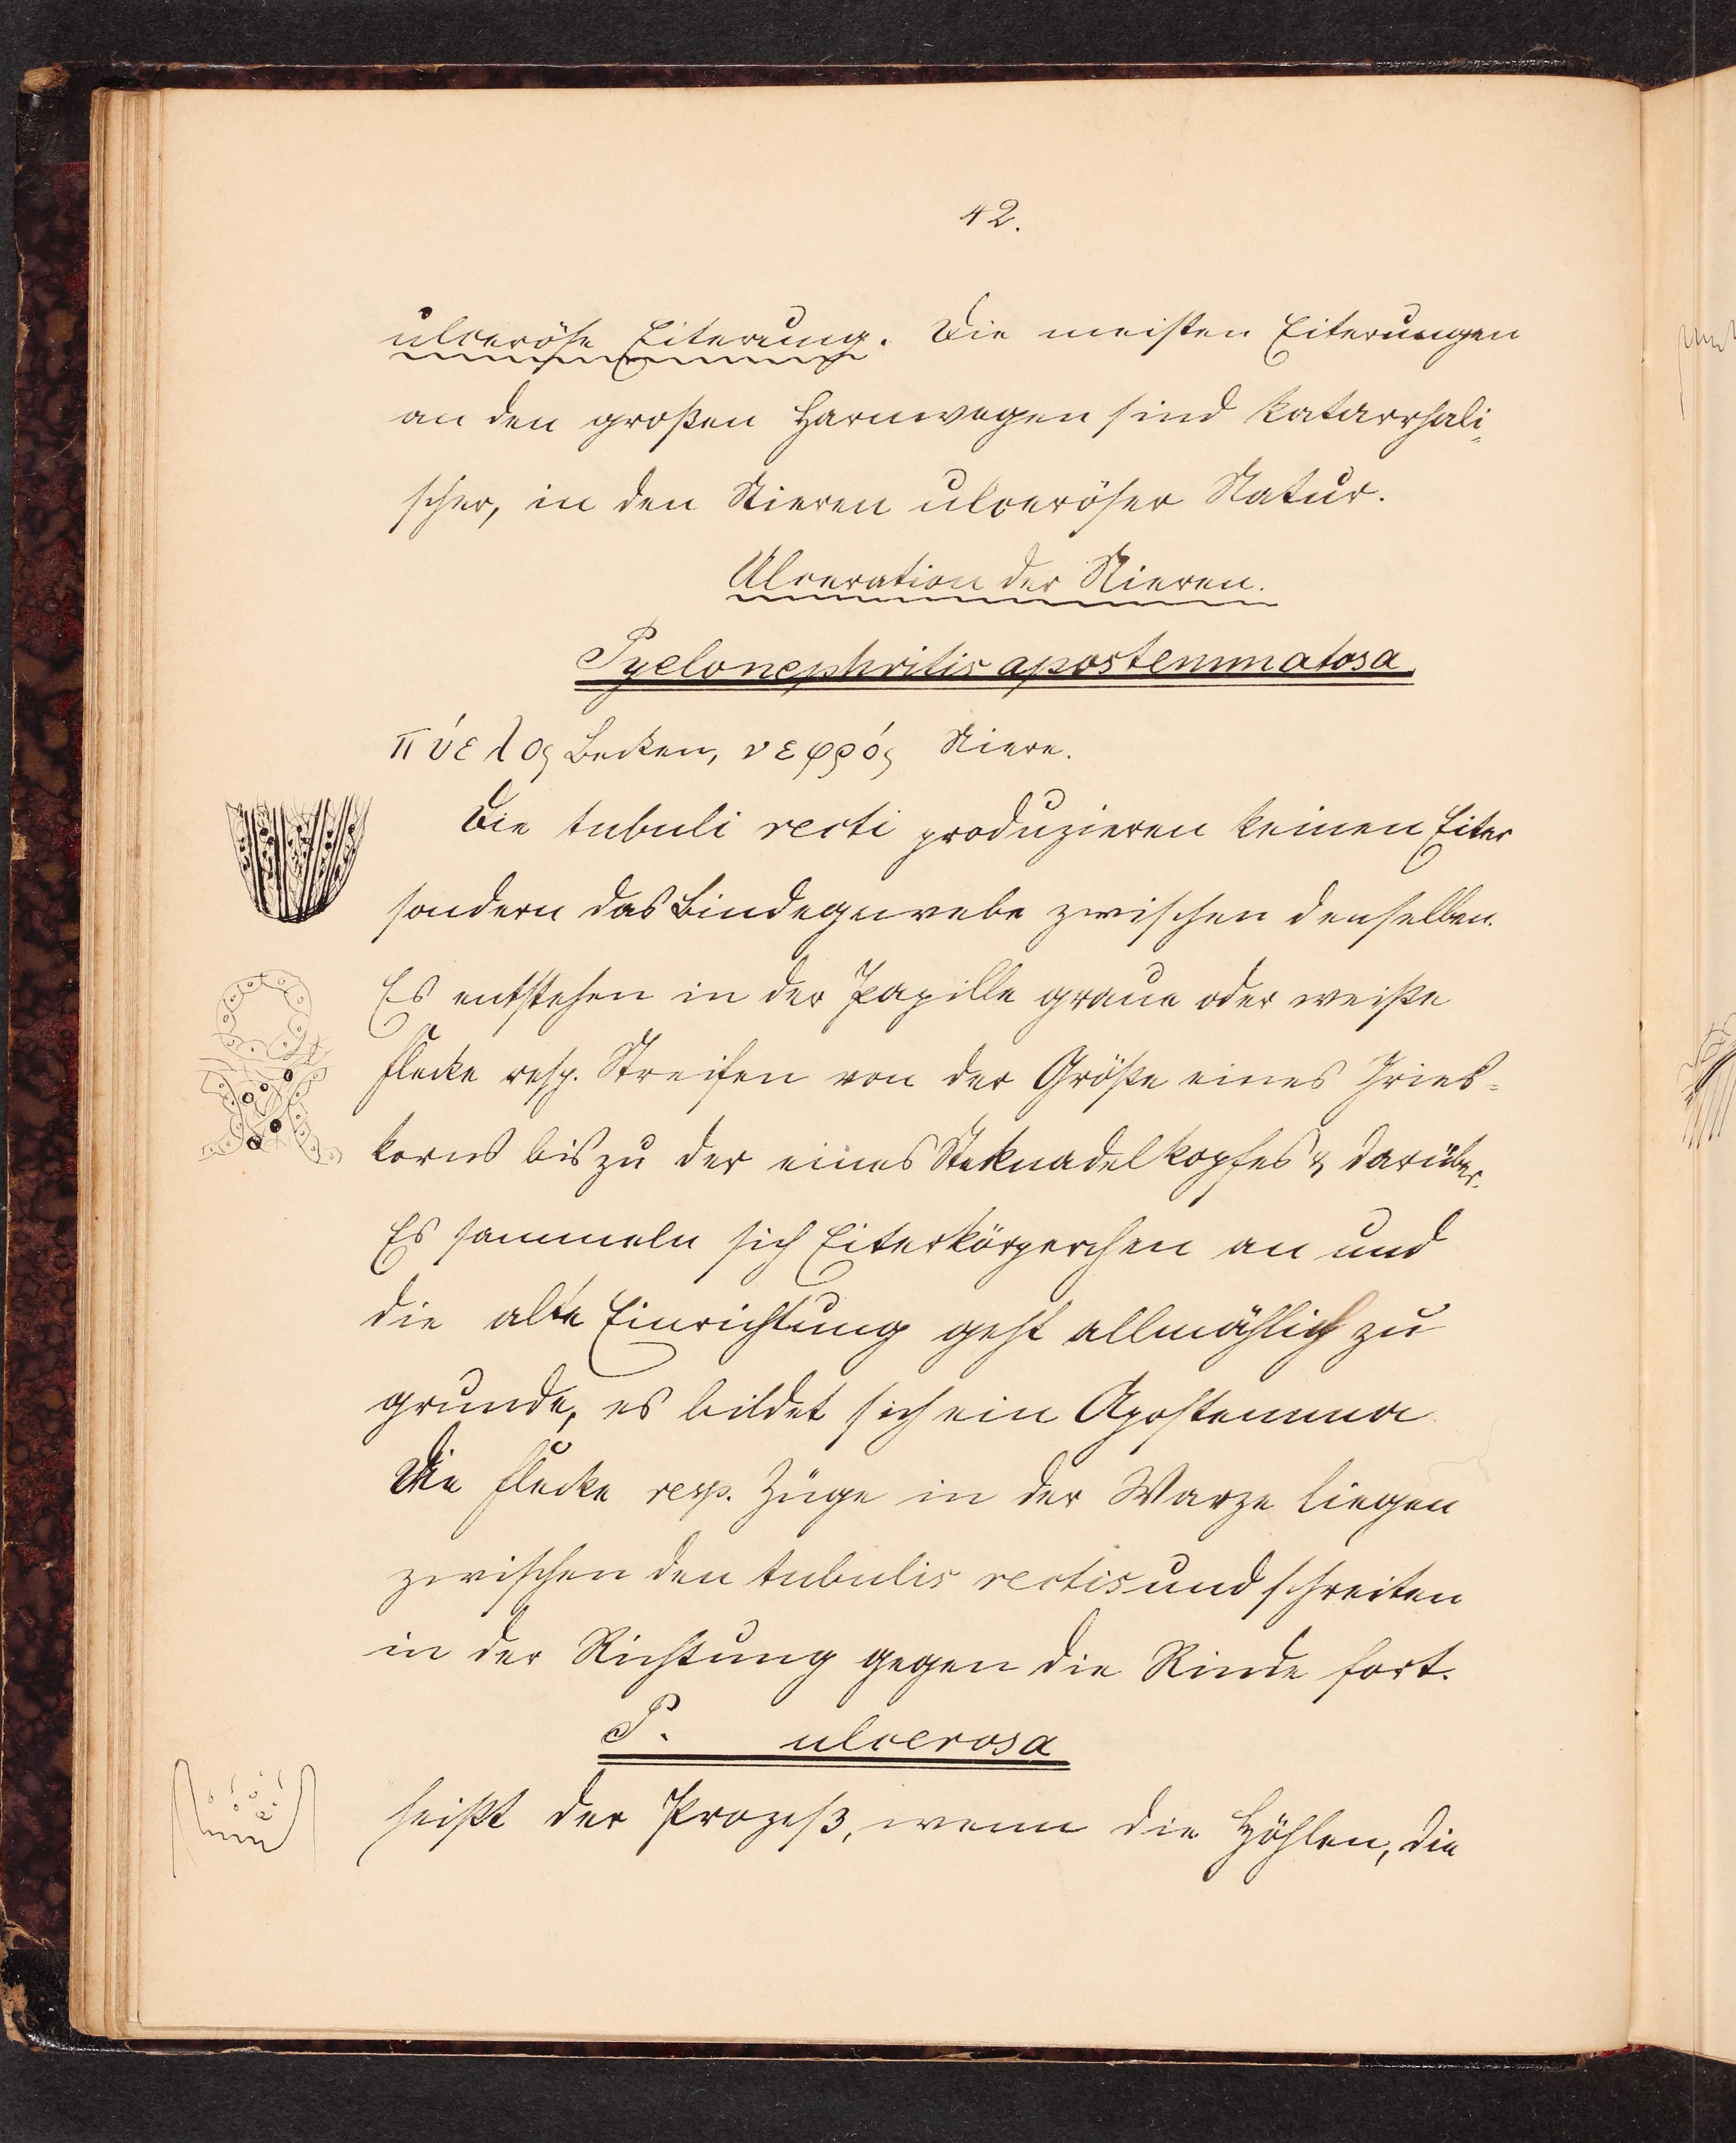 42.
ulceröse Eiterung. Die meisten Eiterungen
an den großen Harnwegen sind katarrhali-
scher, in den Nieren ulceröser Natur.
Ulceration der Nieren.
Pyelonephritis apostemmatosa
πύελος Becken, νεφρός Niere.
Die tubuli recti produzieren keinen Eiter
sondern das Bindegewebe zwischen denselben.
Es entstehen in der Papille graue oder weiße
Flecke resp. Streifen von der Größe eines Gries-
korns bis zu der eines Steknadelkopfes & darüber.
Es sammeln sich Eiterkörperchen an und
die alte Einrichtung geht allmählich zu
grunde, es bildet sich ein Apostemma
Die Flecke resp. Züge in der Warze liegen
zwischen den tubulis rectis und schreiten
in der Richtung gegen die Rinde fort.
P. ulcerosa
heißt der Prozeß, wenn die Höhlen, die